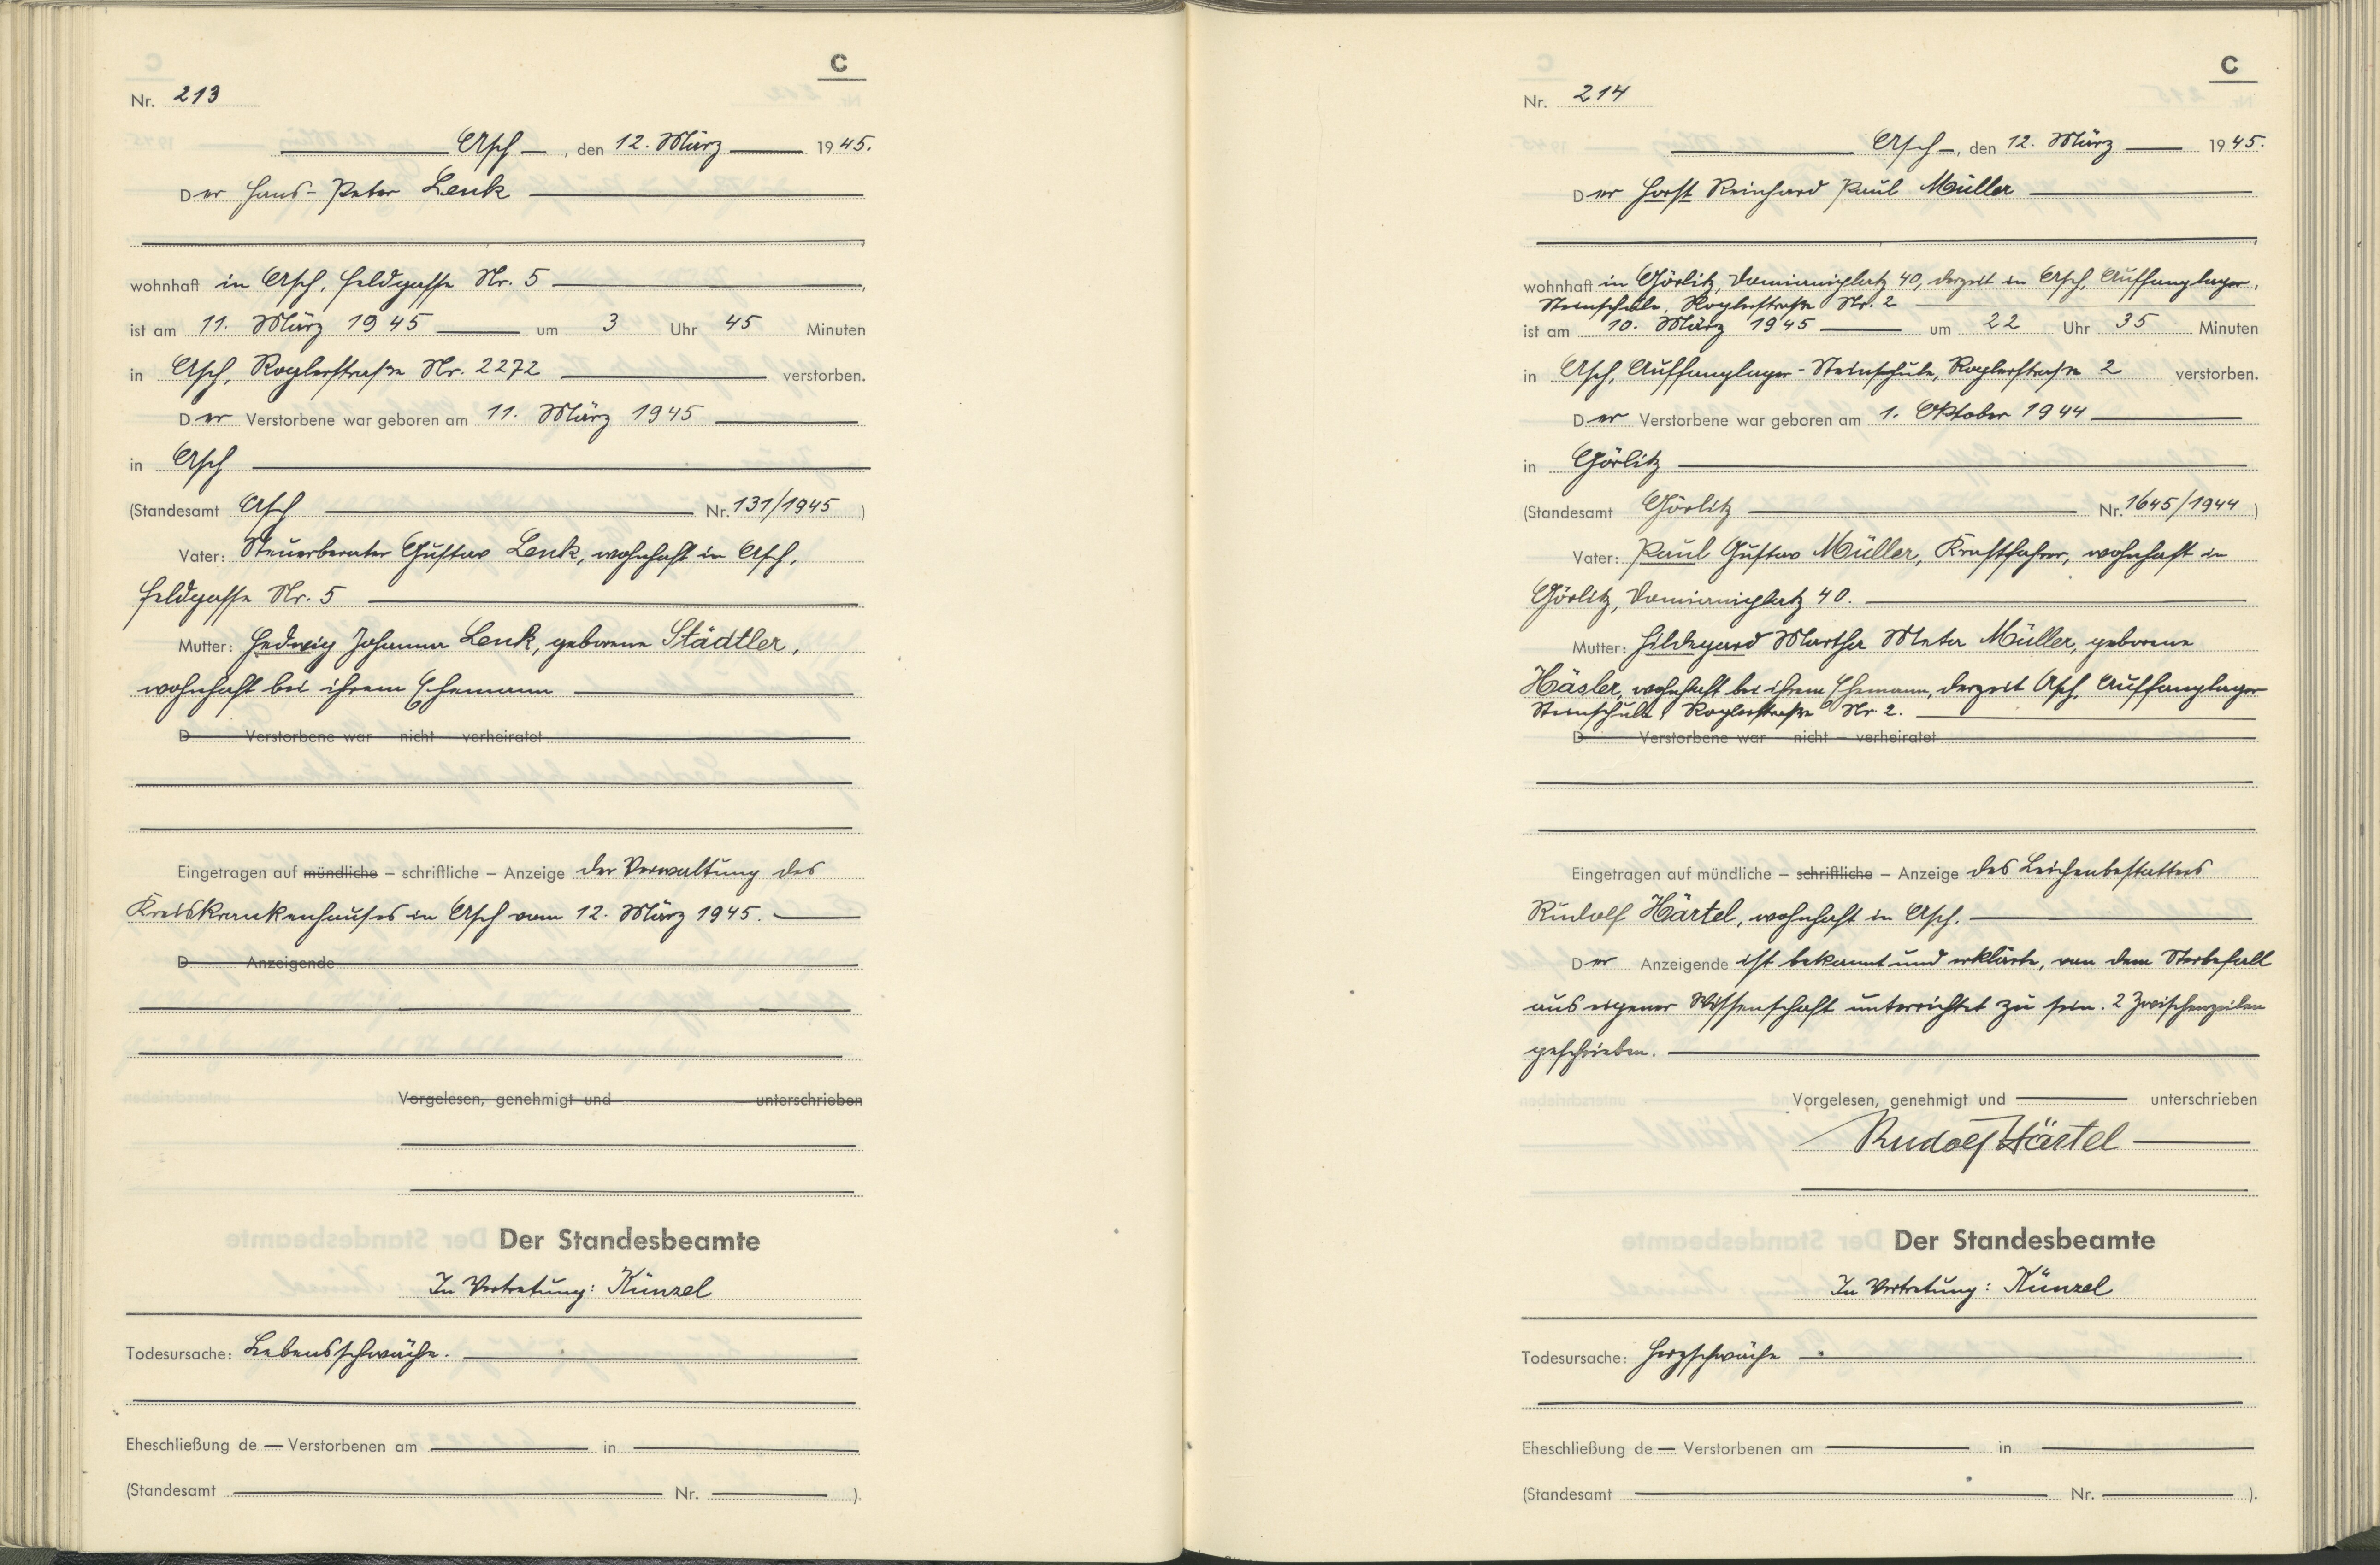 C
Nr. 213
Asch, den 12. März 1945.
Der Hans-Peter Lenk
wohnhaft in Asch, Feldgasse Nr. 5,
ist am 11. März 1945 um 3 Uhr 45 Minuten
in Asch, Roglerstraße Nr. 2272 verstorben.
Der Verstorbene war geboren am 11. März 1945
in Asch
(Standesamt Asch Nr. 131/1945)
Vater: Steuerberater Gustav Lenk, wohnhaft in Asch,
Feldgasse Nr. 5
Mutter: Hedwig Johanna Lenk, geborene Städtler,
wohnhaft bei ihrem Ehemann
D Verstorbene war – nicht – verheiratet
Eingetragen auf mündliche – schriftliche – Anzeige der Verwaltung des
Kreiskrankenhauses in Asch vom 12. März 1945.
D Anzeigende
Vorgelesen, genehmigt und unterschrieben
Der Standesbeamte
In Vertretung: Künzel
Todesursache: Lebensschwäche.
Eheschließung de Verstorbenen am in
(Standesamt Nr. ).
C
Nr. 214
Asch, den 12. März 1945.
Der Horst Reinhard Paul Müller
wohnhaft in Görlitz, Damianiplatz 40, derzeit in Asch, Auffanglager,
Steinschule, Roglerstraße Nr. 2
ist am 10. März 1945 um 22 Uhr 35 Minuten
in Asch, Auffanglager-Steinschule, Roglerstraße 2 verstorben.
Der Verstorbene war geboren am 1. Oktober 1944
in Görlitz
(Standesamt Görlitz Nr. 1645/1944)
Vater: Paul Gustav Müller, Kraftfahrer, wohnhaft in
Görlitz, Damianiplatz 40.
Mutter: Hildegard Martha Meta Müller, geborene
Häsler, wohnhaft bei ihrem Ehemann, derzeit Asch, Auffanglager
Steinschule, Roglerstraße Nr. 2.
D Verstorbene war – nicht – verheiratet
Eingetragen auf mündliche – schriftliche – Anzeige des Leichenbestatters
Rudolf Härtel, wohnhaft in Asch.
Der Anzeigende ist bekannt und erklärte, von dem Sterbefall
aus eigener Wissenschaft unterrichtet zu sein. 2 Zwischenzeilen
geschrieben.
Vorgelesen, genehmigt und unterschrieben
Rudolf Härtel
Der Standesbeamte
In Vertretung: Künzel
Todesursache: Herzschwäche
Eheschließung de Verstorbenen am in
(Standesamt Nr. ).